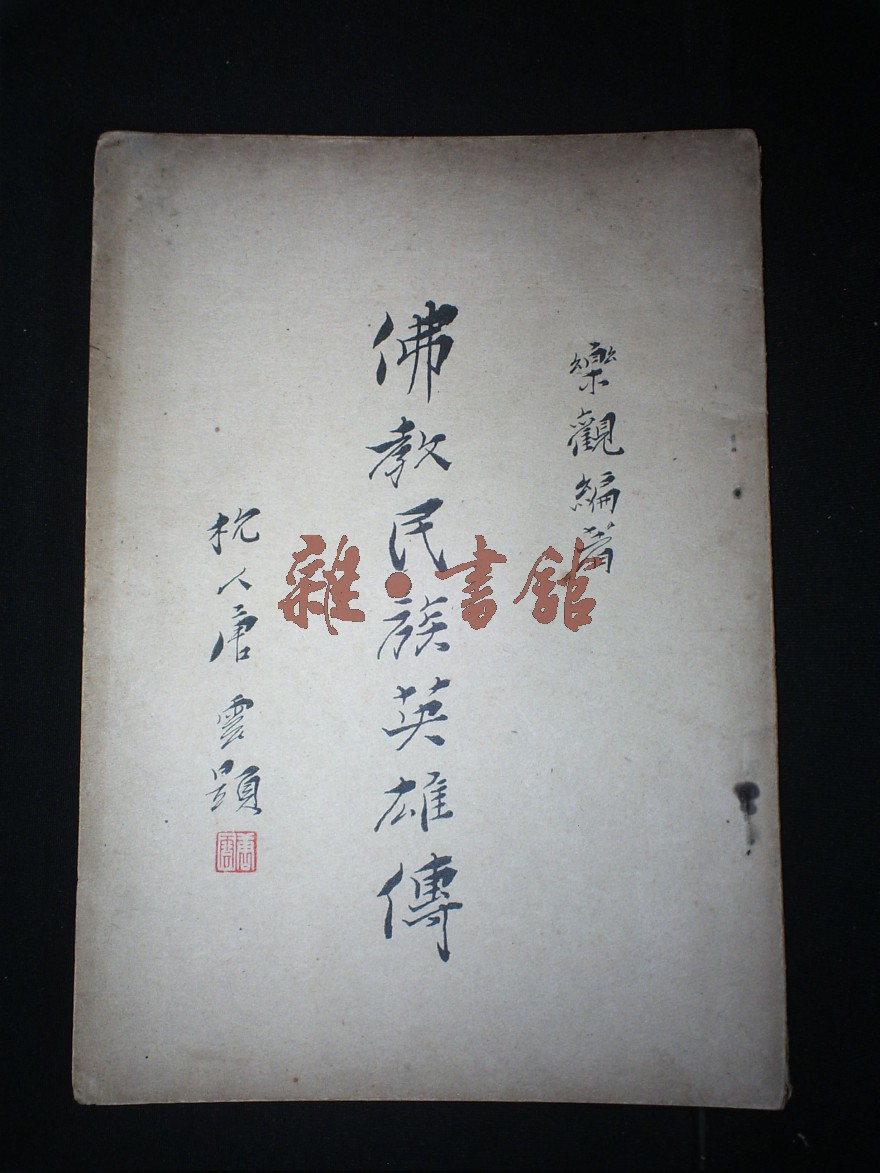 樂觀編著
佛教民族英雄傳
杭人唐雲題
唐雲
雜·書館